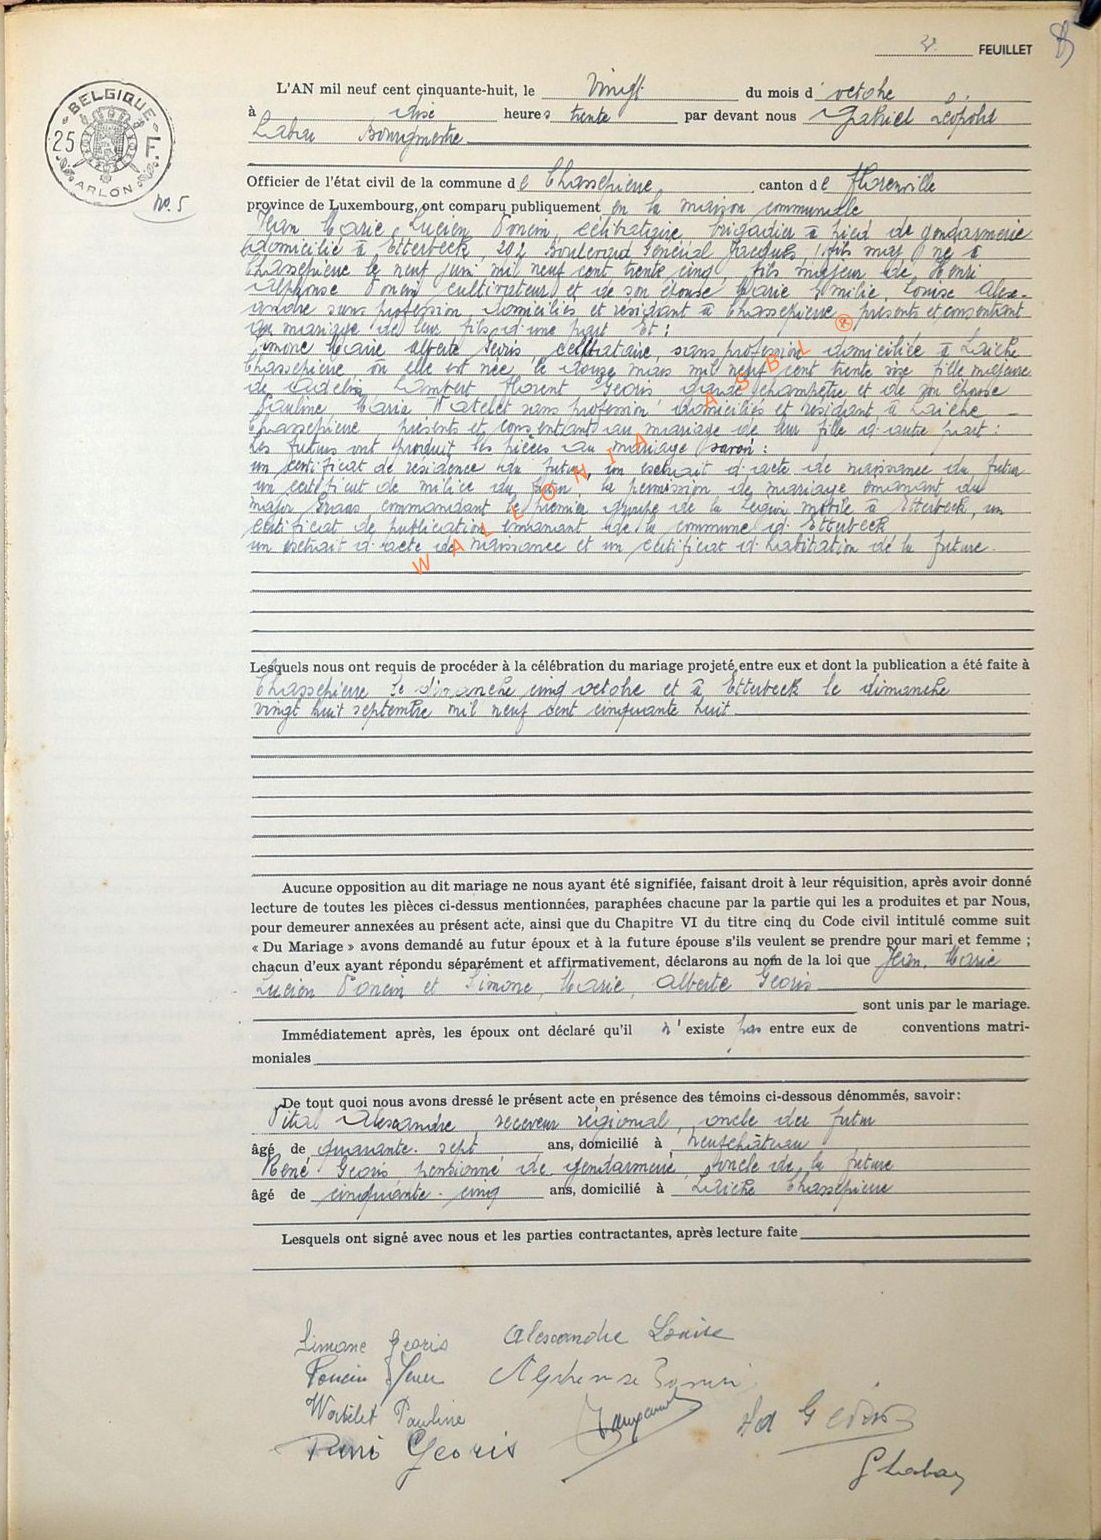 2e FEUILLET 85
BELGIQUE
25 F.
ARLON
no. 5
L'AN mil neuf cent cinquante-huit, le vingt du mois d octobre
à dix heures trente par devant nous Gabriel Léopold
Labar Bourgmestre
Officier de l'état civil de la commune de Chassepierre, canton de Florenville
province de Luxembourg, ont comparu publiquement en la maison communale
Jean Marie Lucien Poncin, célibataire, brigadier à pied de gendarmerie
domicilié à Etterbeck, 202 Boulevard Général Jacques, fils maj né à
Chassepierre le neuf juin mil neuf cent trente cinq, fils majeur de Henri
Alphonse Poncin cultivateur et de son épouse Marie Emilie, Louise Alex-
andre sans profession, domiciliés et résidant à Chassepierre présents et consentant
au mariage de leur fils d'une part Et :
Simone Marie Alberte Georis, célibataire, sans profession domiciliée à Laiche
Chassepierre, où elle est née le douze mars mil neuf cent trente six fille majeure
de Lambert Florent Georis garde champêtre et de son épouse
Pauline Maria Watelet sans profession domiciliés et résidant à Laiche
Chassepierre, présents et consentant au mariage de leur fille d'autre part :
Les futurs ont produit les pièces au mariage savoir :
un certificat de résidence du futur, un extrait d'acte de naissance du futur
un certificat de milice du futur, la permission de mariage émanant du
major commandant le premier groupe de la Légion mobile à Etterbeck, un
certificat de publication émanant de la commune d'Etterbeck
un extrait d'acte de naissance et un certificat d'habitation de la future.
WALLONIA ASBL ®
Lesquels nous ont requis de procéder à la célébration du mariage projeté entre eux et dont la publication a été faite à
Chassepierre le dimanche cinq octobre et à Etterbeck le dimanche
vingt huit septembre mil neuf cent cinquante huit
Aucune opposition au dit mariage ne nous ayant été signifiée, faisant droit à leur réquisition, après avoir donné
lecture de toutes les pièces ci-dessus mentionnées, paraphées chacune par la partie qui les a produites et par Nous,
pour demeurer annexées au présent acte, ainsi que du Chapitre VI du titre cinq du Code civil intitulé comme suit
« Du Mariage » avons demandé au futur époux et à la future épouse s'ils veulent se prendre pour mari et femme ;
chacun d'eux ayant répondu séparément et affirmativement, déclarons au nom de la loi que Jean, Marie
Lucien Poncin et Simone, Marie, Alberte Georis
sont unis par le mariage.
Immédiatement après, les époux ont déclaré qu'il n'existe pas entre eux de conventions matri-
moniales
De tout quoi nous avons dressé le présent acte en présence des témoins ci-dessous dénommés, savoir :
Vital Alexandre, receveur régional, oncle du futur
âgé de quarante-sept ans, domicilié à Neufchâteau
René Georis pensionné de gendarmerie, oncle de la future
âgé de cinquante-cinq ans, domicilié à Laiche Chassepierre
Lesquels ont signé avec nous et les parties contractantes, après lecture faite
Simone Georis Alexandre Louise
Poncin Jean Alphonse Poncin
Watelet Pauline
René Georis
Georis
G Labar